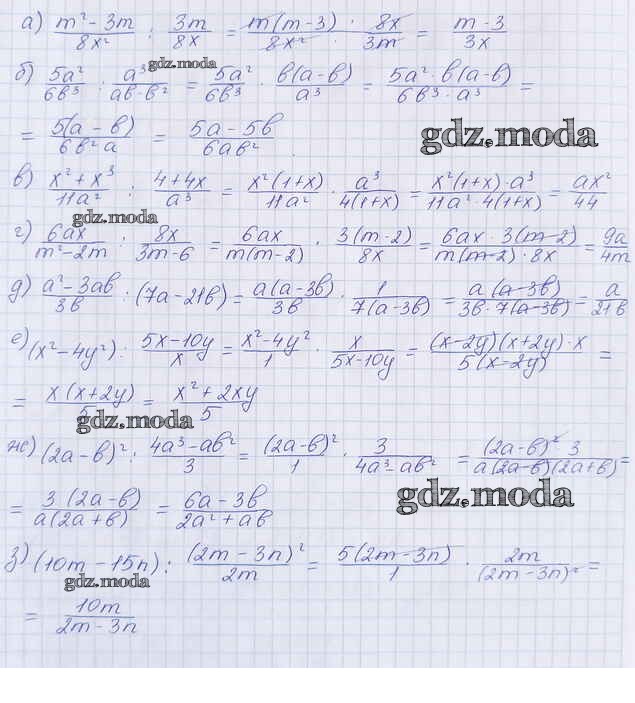 а) (m² - 3m)/(8x²) : (3m)/(8x) = (m(m-3))/(8x²) · (8x)/(3m) = (m-3)/(3x)
gdz.moda
б) (5a²)/(6b³) : (a³)/(ab-b²) = (5a²)/(6b³) · (b(a-b))/(a³) = (5a²·b(a-b))/(6b³·a³) =
= (5(a-b))/(6b²a) = (5a-5b)/(6ab²)
gdz.moda
в) (x²+x³)/(11a²) : (4+4x)/(a³) = (x²(1+x))/(11a²) · (a³)/(4(1+x)) = (x²(1+x)·a³)/(11a²·4(1+x)) = (ax²)/(44)
gdz.moda
г) (6ax)/(m²-2m) : (8x)/(3m-6) = (6ax)/(m(m-2)) · (3(m-2))/(8x) = (6ax·3(m-2))/(m(m-2)·8x) = (9a)/(4m)
д) (a²-3ab)/(3b) : (7a-21b) = (a(a-3b))/(3b) · (1)/(7(a-3b)) = (a(a-3b))/(3b·7(a-3b)) = (a)/(21b)
е) (x²-4y²) : (5x-10y)/(x) = (x²-4y²)/(1) · (x)/(5x-10y) = ((x-2y)(x+2y)·x)/(5(x-2y)) =
= (x(x+2y))/(5) = (x²+2xy)/(5)
gdz.moda
ж) (2a-b)² : (4a³-ab²)/(3) = ((2a-b)²)/(1) · (3)/(4a³-ab²) = ((2a-b)² 3)/(a(2a-b)(2a+b)) =
= (3(2a-b))/(a(2a+b)) = (6a-3b)/(2a²+ab)
gdz.moda
з) (10m-15n) : ((2m-3n)²)/(2m) = (5(2m-3n))/(1) · (2m)/((2m-3n)²) =
gdz.moda
= (10m)/(2m-3n)